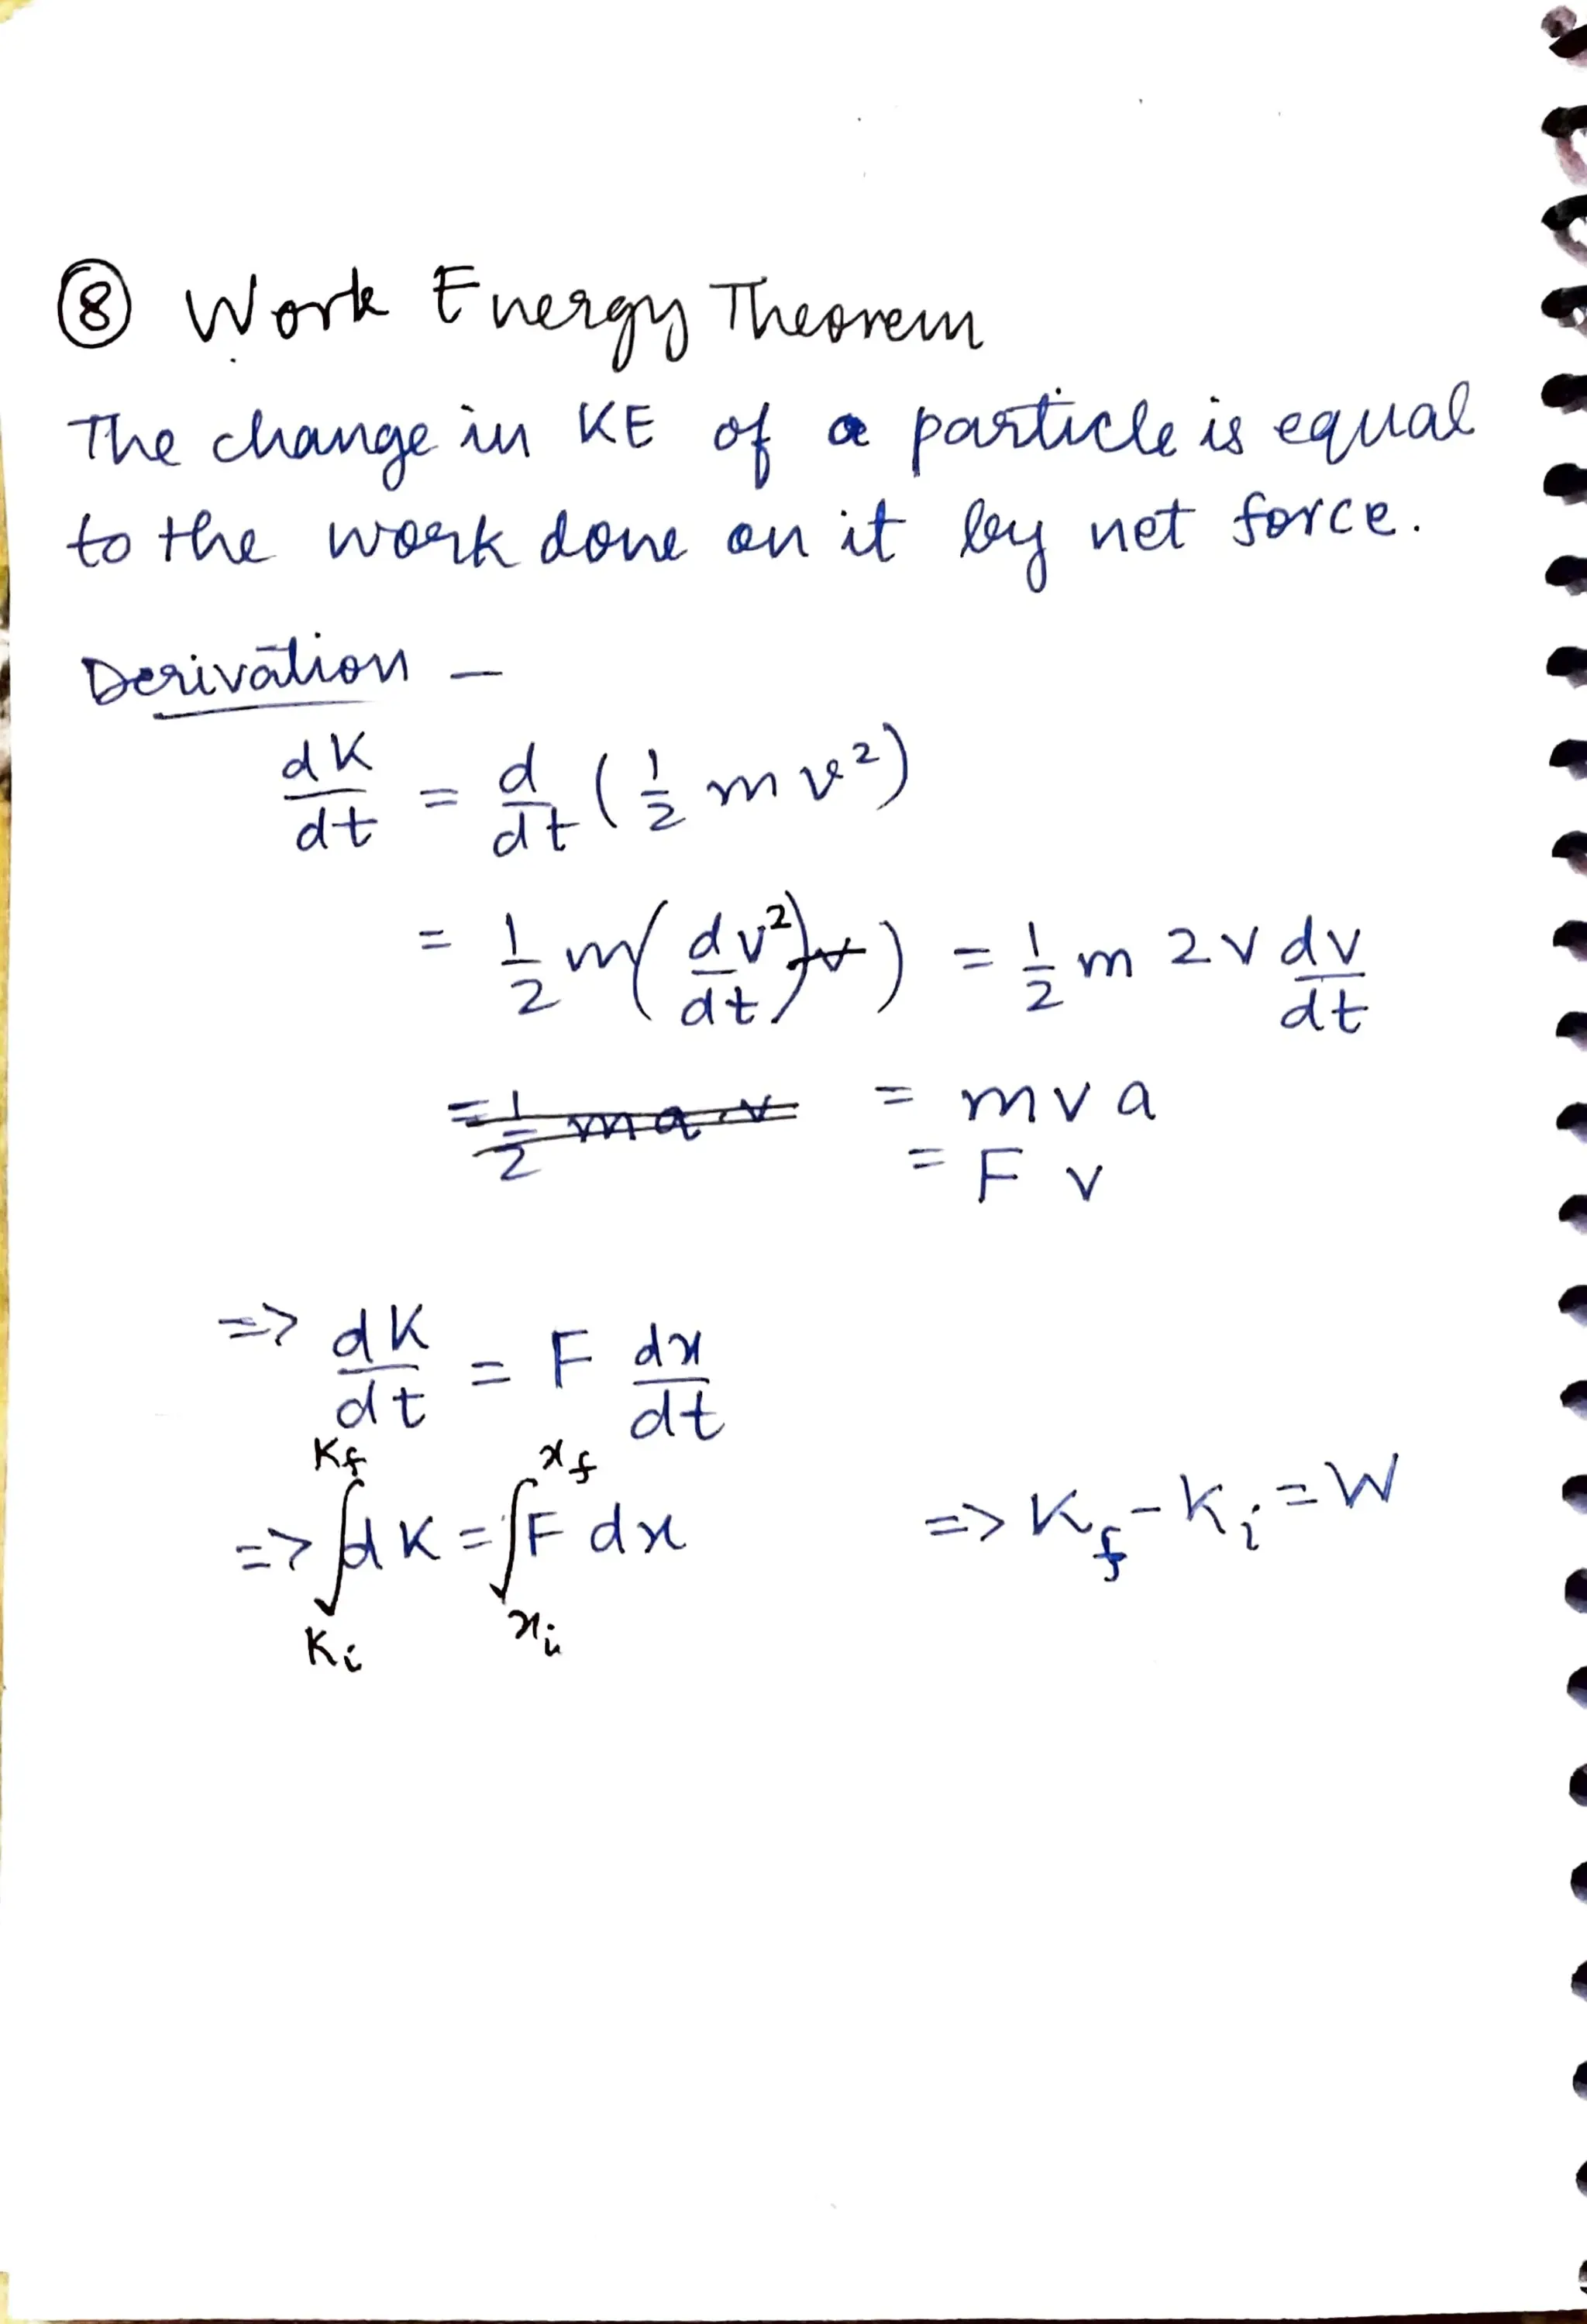 ⑧ Work Energy Theorem
The change in KE of a particle is equal
to the work done on it by net force.
Derivation –
dK/dt = d/dt (1/2 m v²)
= 1/2 m (dv²/dt) = 1/2 m 2v dv/dt
= 1/2 m a v = m v a
= F v
=> dK/dt = F dx/dt
=> ∫_{Ki}^{Kf} dK = ∫_{xi}^{xf} F dx => K_f - K_i = W